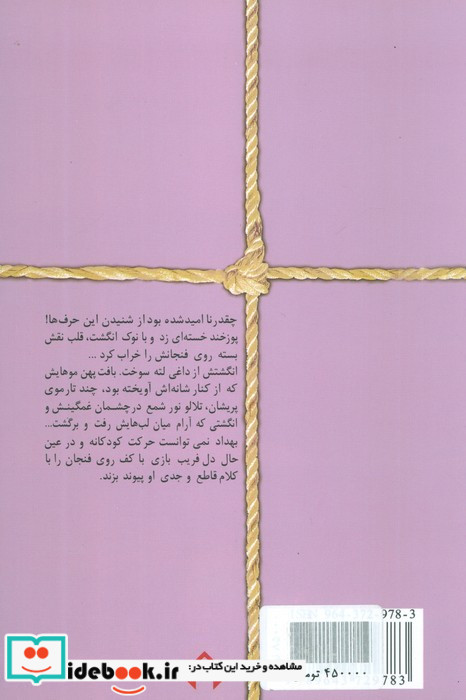 چقدر نا امید شده بود از شنیدن این حرف‌ها!
پوزخند خسته‌ای زد و با نوک انگشت، قلب نقش
بسته روی فنجانش را خراب کرد ...
انگشتش از داغی لته سوخت. بافت پهن موهایش
که از کنار شانه‌اش آویخته بود، چند تار موی
پریشان، تلالو نور شمع در چشمان غمگینش و
انگشتی که آرام میان لب‌هایش رفت و برگشت...
بهداد نمی توانست حرکت کودکانه و در عین
حال دل فریب بازی با کف روی فنجان را با
کلام قاطع و جدی او پیوند بزند.
978-3
۴۵۰۰۰۰ توم
9783
مشاهده و خرید این کتاب در:
idebook.ir